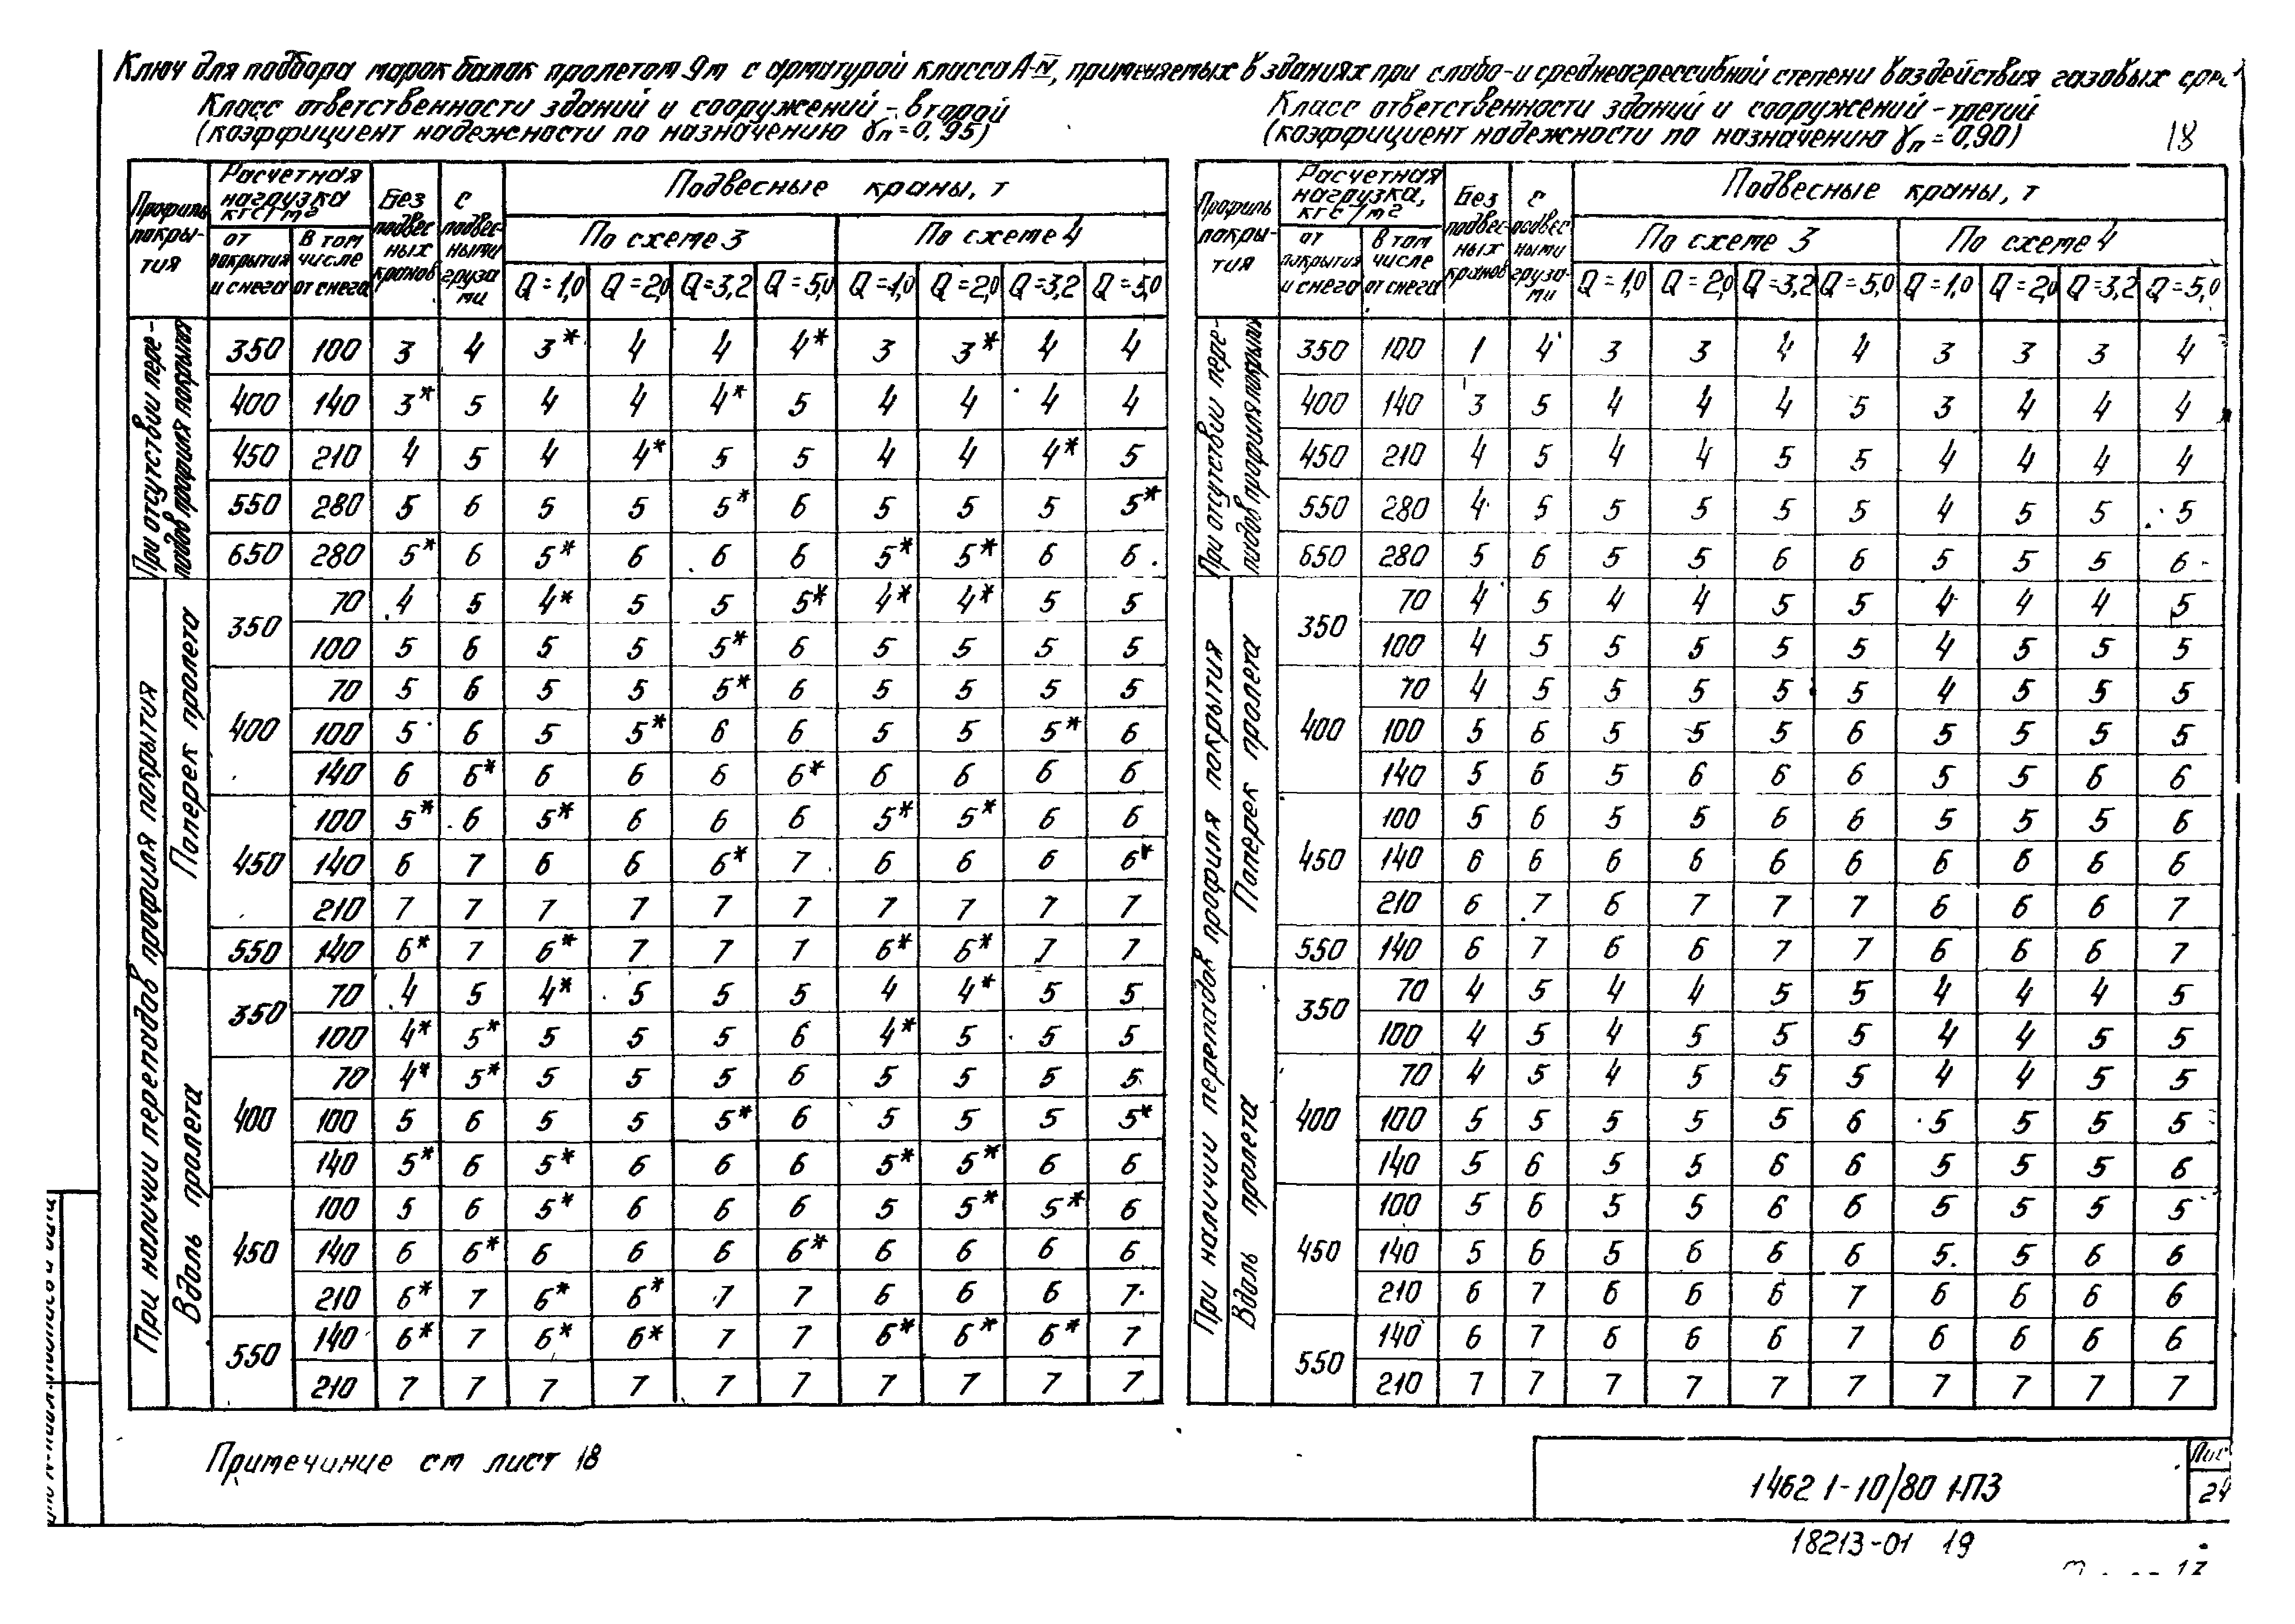 Ключ для подбора марок балок пролетом 9м с арматурой класса А-IV, применяемых в зданиях при слабо- и среднеагрессивной степени воздействия газовых
Класс ответственности зданий и сооружений - второй
(коэффициент надежности по назначению γп = 0,95)
Класс ответственности зданий и сооружений - третий
(коэффициент надежности по назначению γп = 0,90)
18
Профиль покрытия | Расчетная нагрузка кгс/м2 | Без подвесных кранов | С подвесными грузами | Подвесные краны, т
от покрытия и снега | В том числе от снега | По схеме 3 | По схеме 4
Q=1,0 Q=2,0 Q=3,2 Q=5,0 Q=1,0 Q=2,0 Q=3,2 Q=5,0
При отсутствии перепадов профиля покрытия
350 100 3 4 3* 4 4 4* 3 3* 4 4
400 140 3* 5 4 4 4* 5 4 4 4 4
450 210 4 5 4 4* 5 5 4 4 4* 5
550 280 5 6 5 5 5* 6 5 5 5 5*
650 280 5* 6 5* 6 6 6 5* 5* 6 6
При наличии перепадов профиля покрытия
Поперек пролета
350 70 4 5 4* 5 5 5* 4* 4* 5 5
100 5 6 5 5 5* 6 5 5 5 5
400 70 5 6 5 5 5* 6 5 5 5 5
100 5 6 5 5* 6 6 5 5 5* 6
140 6 6* 6 6 6 6* 6 6 6 6
450 100 5* 6 5* 6 6 6 5* 5* 6 6
140 6 7 6 6 6* 7 6 6 6 6*
210 7 7 7 7 7 7 7 7 7 7
550 140 6* 7 6* 7 7 7 6* 6* 7 7
Вдоль пролета
350 70 4 5 4* 5 5 5 4 4* 5 5
100 4* 5* 5 5 5 6 4* 5 5 5
400 70 4* 5* 5 5 5 6 5 5 5 5
100 5 6 5 5 5* 6 5 5 5 5*
140 5* 6 5* 6 6 6 5* 5* 6 6
450 100 5 6 5* 6 6 6 5 5* 5* 6
140 6 6* 6 6 6 6* 6 6 6 6
210 6* 7 6* 6* 7 7 6 6 6 7
550 140 6* 7 6* 6* 7 7 6* 6* 6* 7
210 7 7 7 7 7 7 7 7 7 7
Профиль покрытия | Расчетная нагрузка, кгс/м2 | Без подвесных кранов | С подвесными грузами | Подвесные краны, т
от покрытия и снега | В том числе от снега | По схеме 3 | По схеме 4
Q=1,0 Q=2,0 Q=3,2 Q=5,0 Q=1,0 Q=2,0 Q=3,2 Q=5,0
При отсутствии перепадов профиля покрытия
350 100 1 4 3 3 4 4 3 3 3 4
400 140 3 5 4 4 4 5 3 4 4 4
450 210 4 5 4 4 5 5 4 4 4 4
550 280 4 5 5 5 5 5 4 5 5 5
650 280 5 6 5 5 6 6 5 5 5 6
При наличии перепадов профиля покрытия
Поперек пролета
350 70 4 5 4 4 5 5 4 4 4 5
100 4 5 5 5 5 5 4 5 5 5
400 70 4 5 5 5 5 5 4 5 5 5
100 5 6 5 5 5 6 5 5 5 5
140 5 6 5 6 6 6 5 5 6 6
450 100 5 6 5 5 6 6 5 5 5 6
140 6 6 6 6 6 6 6 6 6 6
210 6 7 6 7 7 7 6 6 6 7
550 140 6 7 6 6 7 7 6 6 6 7
Вдоль пролета
350 70 4 5 4 4 5 5 4 4 4 5
100 4 5 4 5 5 5 4 4 5 5
400 70 4 5 4 5 5 5 4 4 5 5
100 5 5 5 5 5 6 5 5 5 5
140 5 6 5 5 6 6 5 5 5 6
450 100 5 6 5 5 6 6 5 5 5 5
140 5 6 5 6 6 6 5 5 6 6
210 6 7 6 6 6 7 6 6 6 6
550 140 6 7 6 6 6 7 6 6 6 6
210 7 7 7 7 7 7 7 7 7 7
Примечание см лист 18
1462 1-10/80 1-ПЗ
Лис
24
18213-01 19